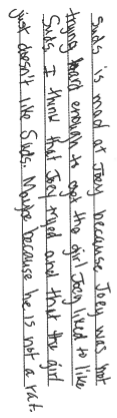 Suds is mad at Joey because Joey was not
trying hard enough to get the girl Joey liked to like
Suds. I think that Joey tryed and that the girl
just doesn't like Suds. Maybe because he is not a rat.